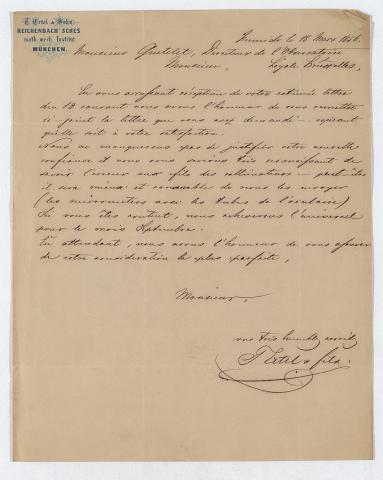 T. Ertel & Sohn
REICHENBACH'SCHES
math. mech. Institut
MÜNCHEN.
Munich le 18 Mars 1876.
Monsieur Quetelet, Directeur de l'Observatoire
Monsieur, Royale Bruxelles,
En vous accusant réception de votre estimée lettre
du 12 courant nous avons l'honneur de vous remettre
ci joint la lettre que vous avez demandé – espérant
qu'elle soit à votre satisfaction.
Nous ne manquerons pas de justifier votre nouvelle
confiance et nous vous serions très reconnaissant de
savoir l'erreur aux fils des collimateurs – peut être
il sera mieux et convenable de nous les envoyer
(les micromètres avec les tubes de l'oculaire)
Si vous êtes content, nous acheverons l'universel
pour le mois Septembre.
En attendant, nous avons l'honneur de vous assurer
de notre considération la plus parfaite,
Monsieur,
vos très humbles
T. Ertel & fils.